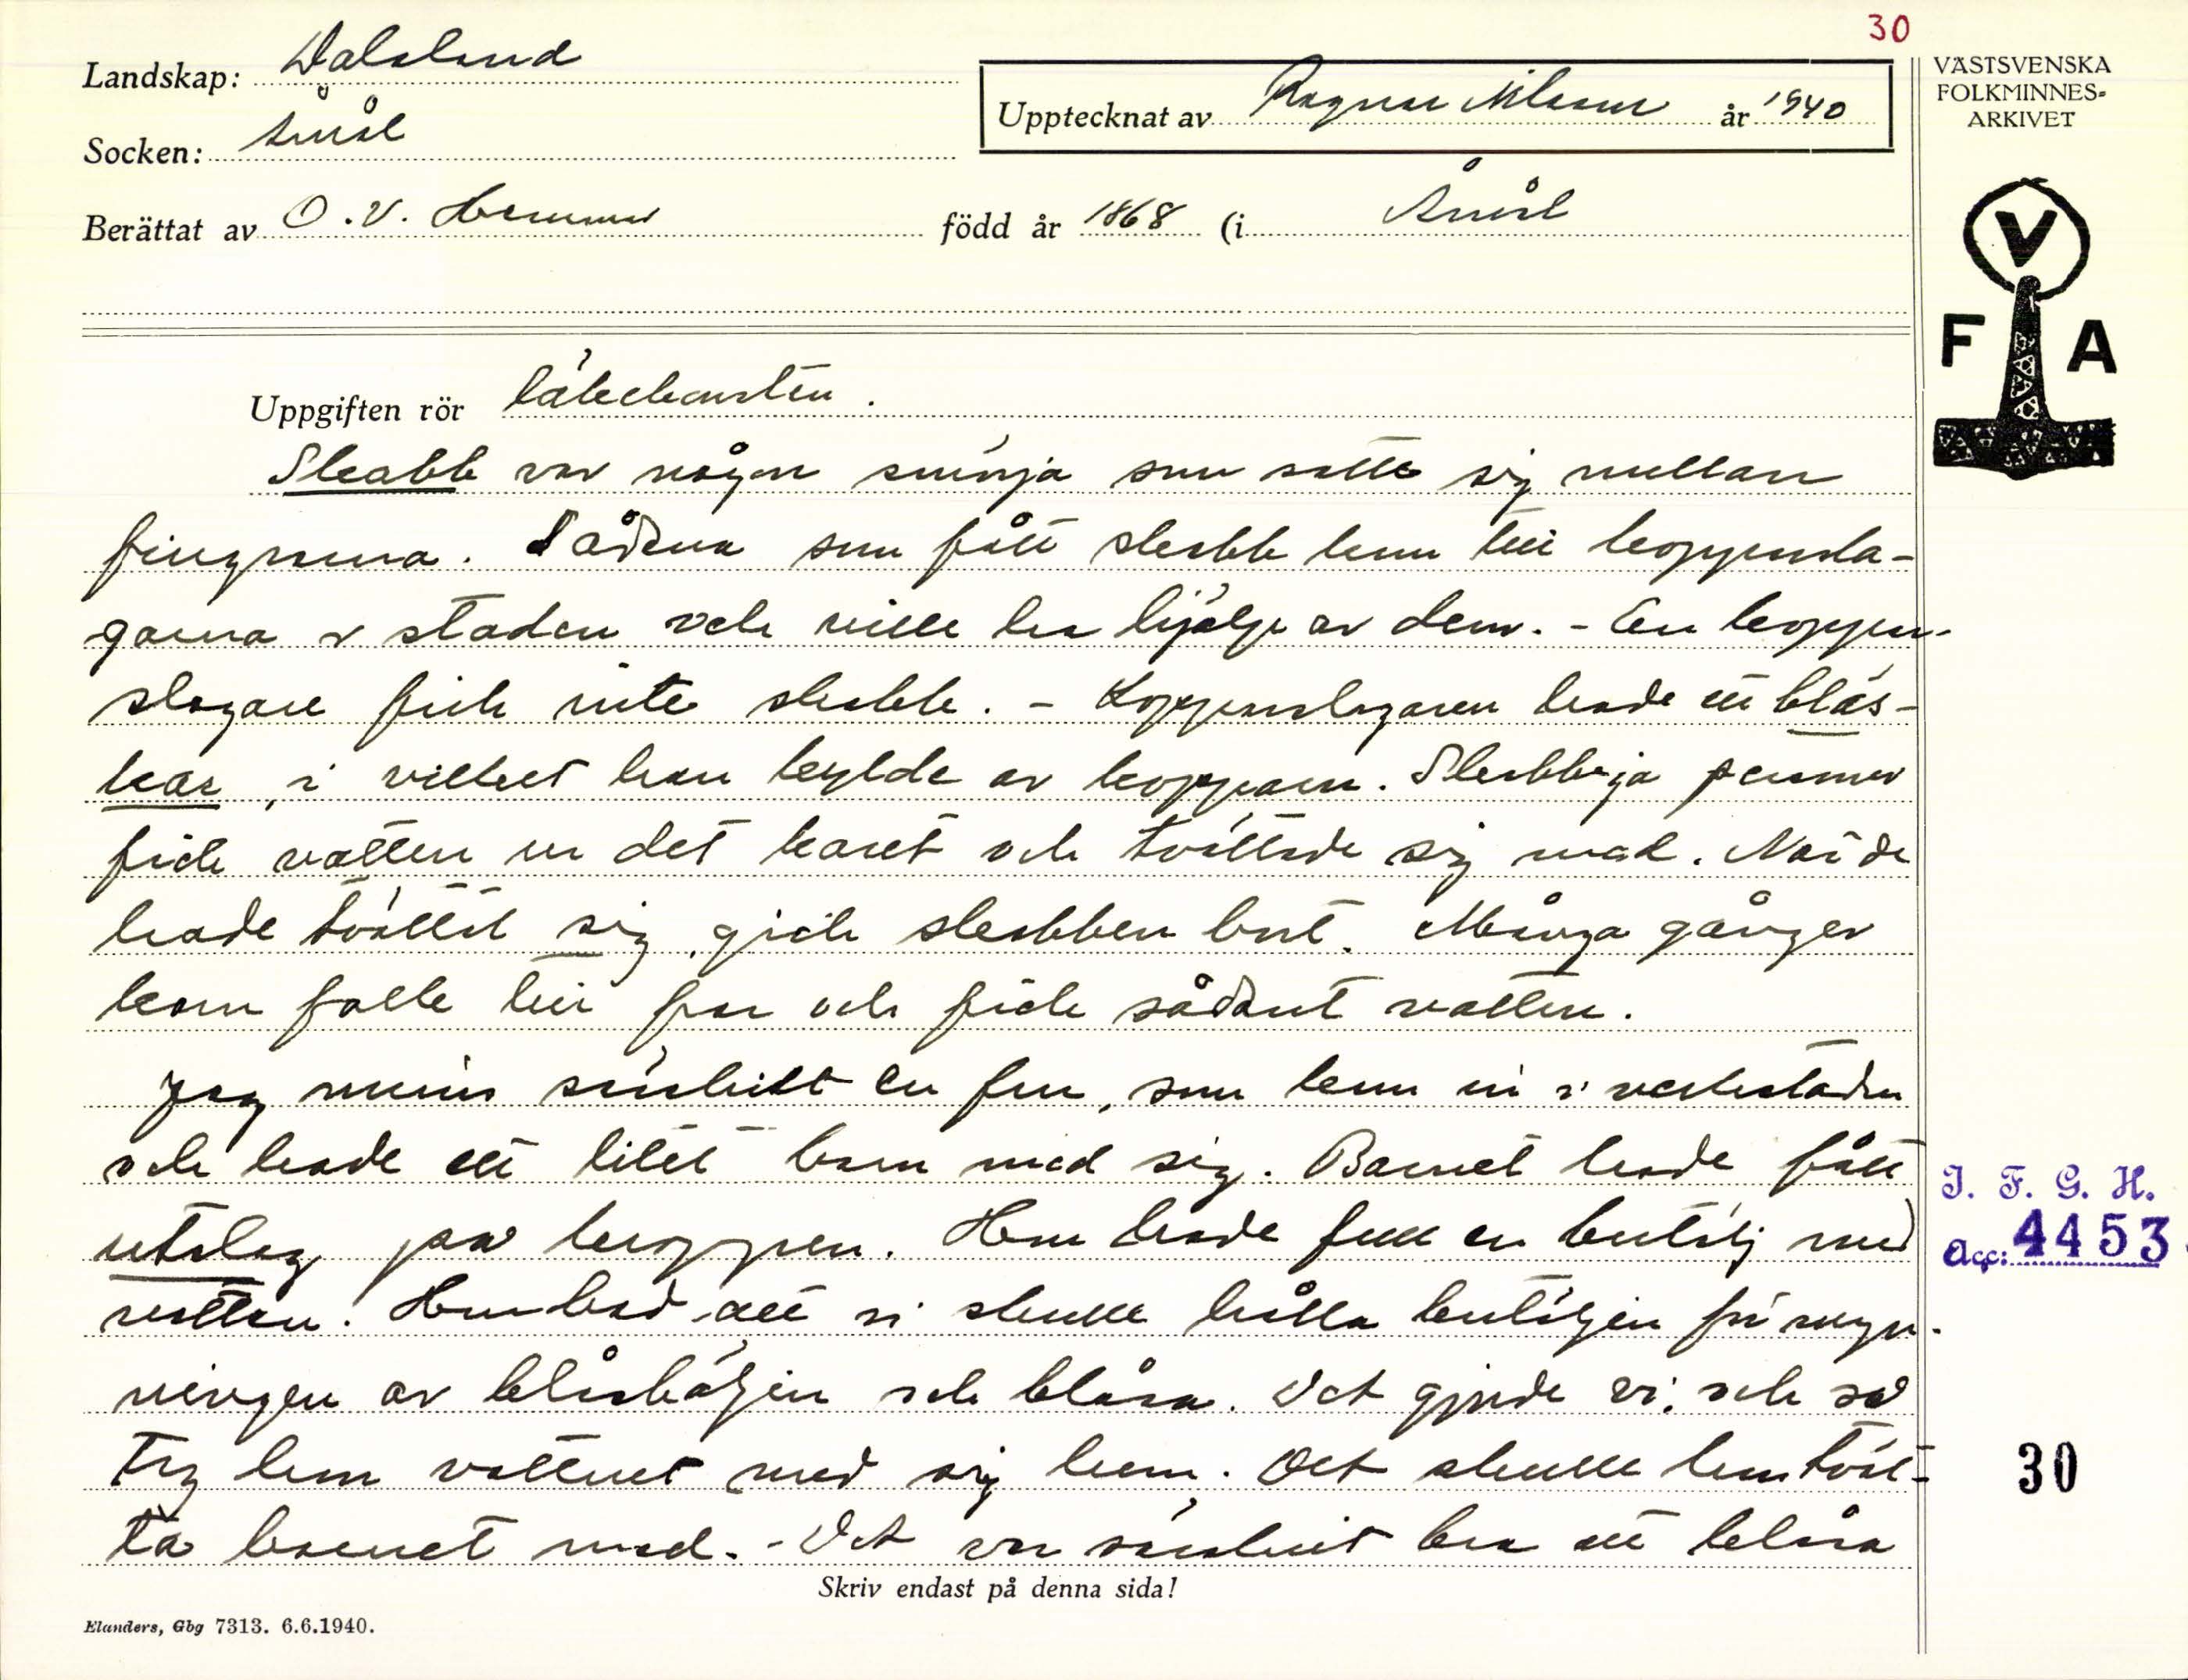 30
Landskap: Dalsland
VÄSTSVENSKA
FOLKMINNES-
ARKIVET
Upptecknat av Ragnar Nilsson år 1940
Socken: Åmål
Berättat av O. V. Hammar född år 1868 (i Åmål
V
F A
Uppgiften rör läkekonsten.
Skabb var någon smörja som satte sig mellan
fingrarna. Sådana som fått skabb kom till kopparsla-
garna i staden och ville ha hjälp av dem. - En koppar-
slagare fick inte skabb. - Kopparslagaren hade ett bläs-
kar, i vilket han kylde av kopparn. Skabbiga personer
fick vatten ur det karet och tvättade sig med. När de
hade tvättat sig, gick skabben bort. Många gånger
kom folk till far och fick sådant vatten.
Jag minns särskilt en fru, som kom in i verkstaden
och hade ett litet barn med sig. Barnet hade fått
utslag på kroppen. Hon hade full en butölj med
vatten. Hon bad att vi skulle hålla butöljen för myn-
ningen av blåsbäljen och blåsa. Det gjorde vi, och så
tog hon vattnet med sig hem. Det skulle hon tvät-
ta barnet med. - Det var särskilt bra att blåsa
J. F. G. H.
Acc: 4453
30
Skriv endast på denna sida!
Elanders, Gbg 7313. 6.6.1940.